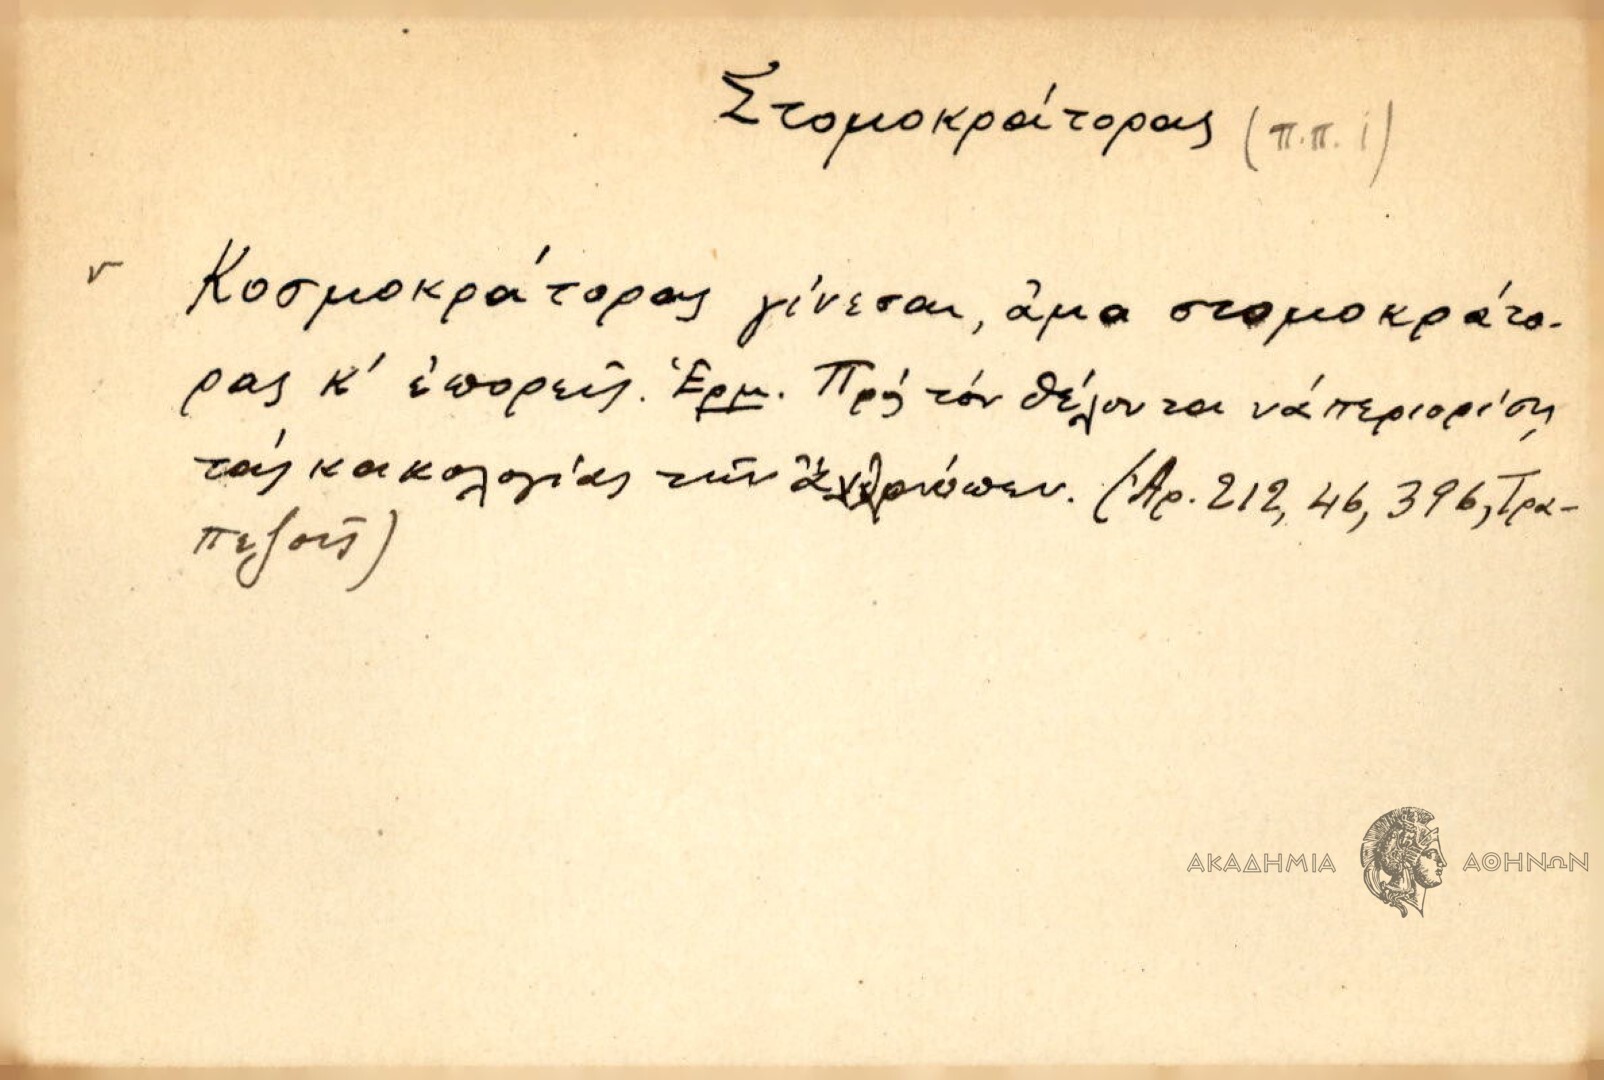 Στομοκράτορας (π.π. 1)
Κοσμοκράτορας γίνεσαι, ἄμα στομοκράτο-
ρας κ' ἐπορεῖς. Ἑρμ. Πρὸς τὸν θέλοντα νά περιορίσῃ
τάς κακολογίας τῶν ἀνθρώπων. (Ἀρ. 212, 46, 396, Τρα-
πεζοῦς)
ΑΚΑΔΗΜΙΑ ΑΘΗΝΩΝ